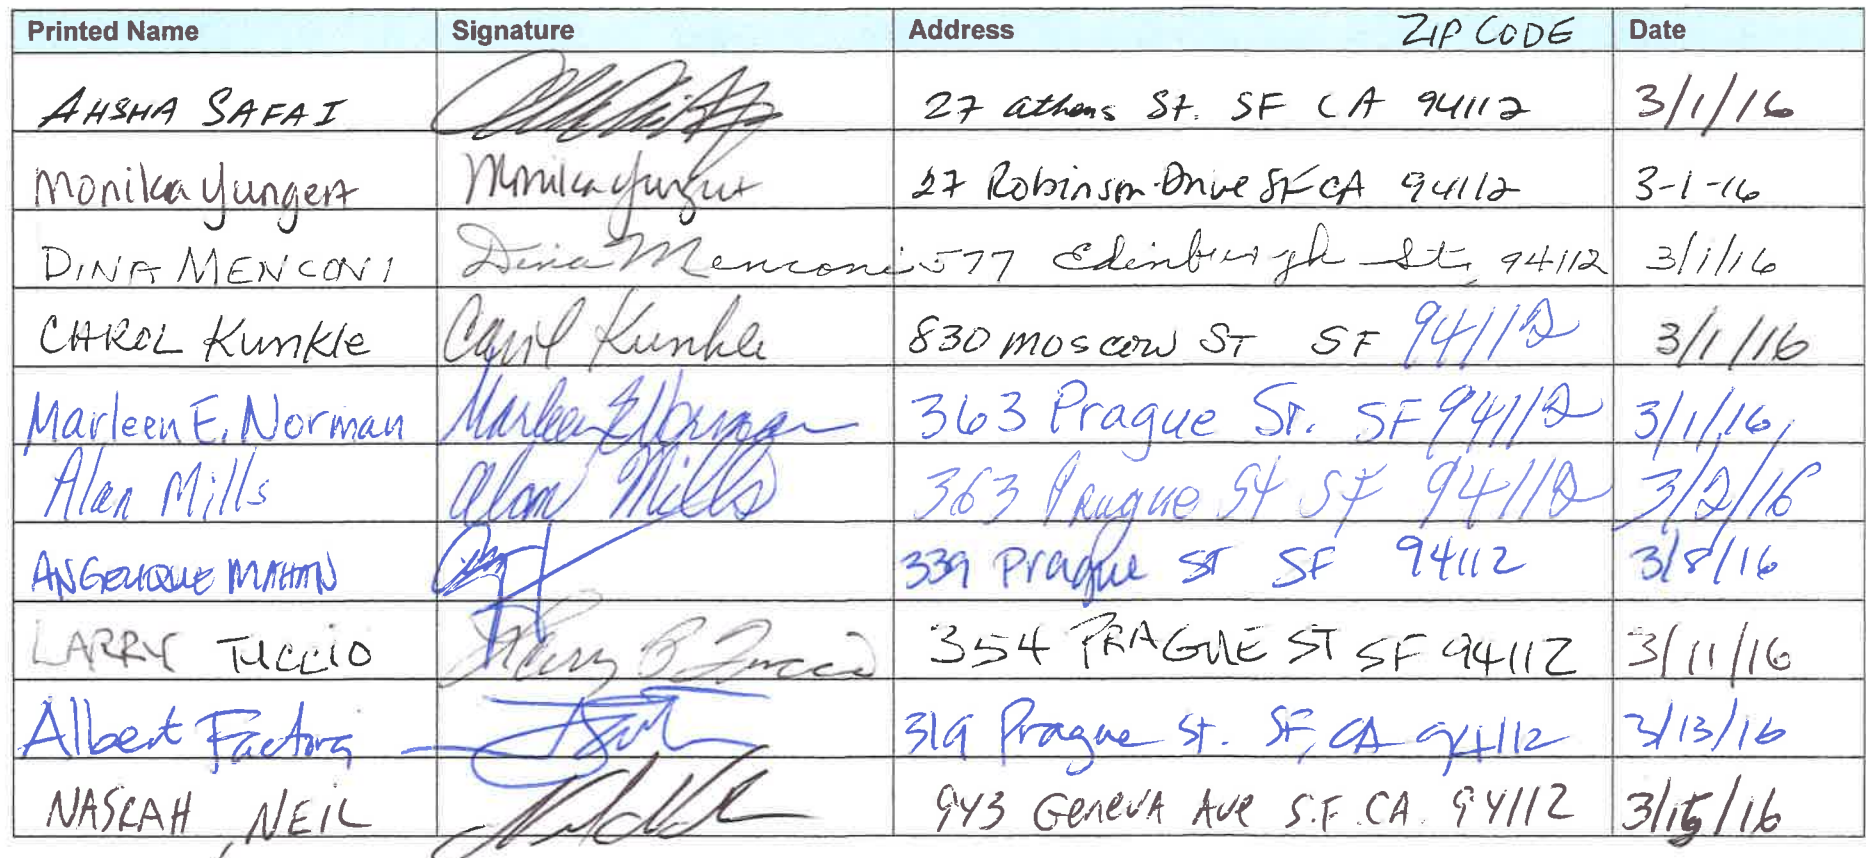 Printed Name Signature Address ZIP CODE Date
AHSHA SAFAI 27 athens St. SF CA 94112 3/1/16
Monika Yungert Monika Yungert 27 Robinson Drive SF CA 94112 3-1-16
DINA MENCONI Dina Menconi 577 Edinburgh St, 94112 3/1/16
CAROL Kunkle Carol Kunkle 830 Moscow ST SF 94112 3/1/16
Marleen E. Norman Marleen E Norman 363 Prague St. SF 94112 3/1/16
Alan Mills Alan Mills 363 Prague St SF 94112 3/2/16
ANGELIQUE MAHAN 339 Prague ST SF 94112 3/8/16
LARRY TUCCIO Larry B Tuccio 354 PRAGUE ST SF 94112 3/11/16
Albert 319 Prague St. SF, CA 94112 3/13/16
NASRAH, NEIL 943 GENEVA AVE S.F. CA. 94112 3/15/16